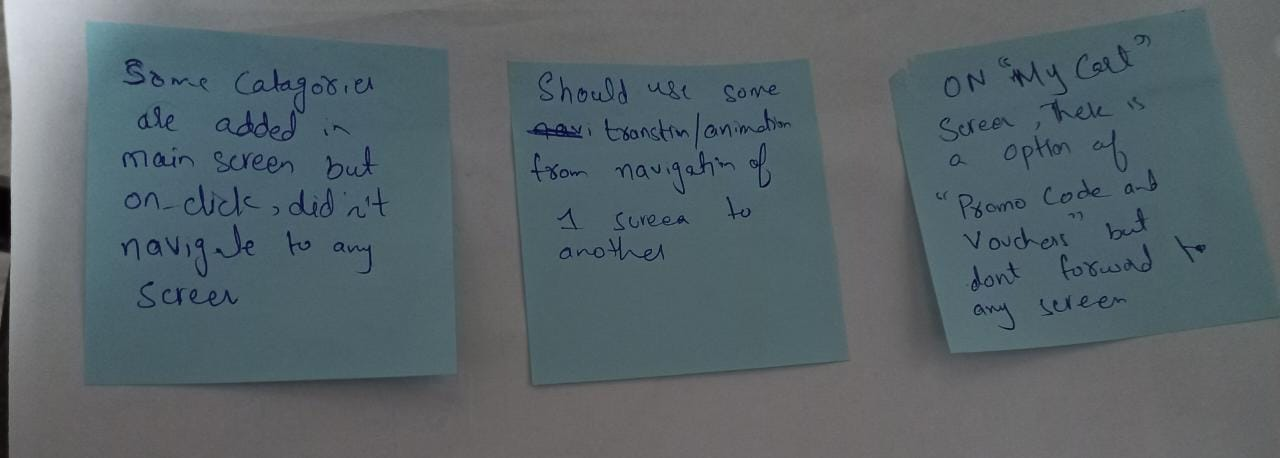 Some Catagories
are added in
main screen but
on-click, didn't
navigate to any
Screen
Should use some
transtin/animation
from navigatin of
1 screen to
another
ON "My Cart"
Screen, there is
a option of
"Promo Code and
Vouchers" but
dont forward to
any screen